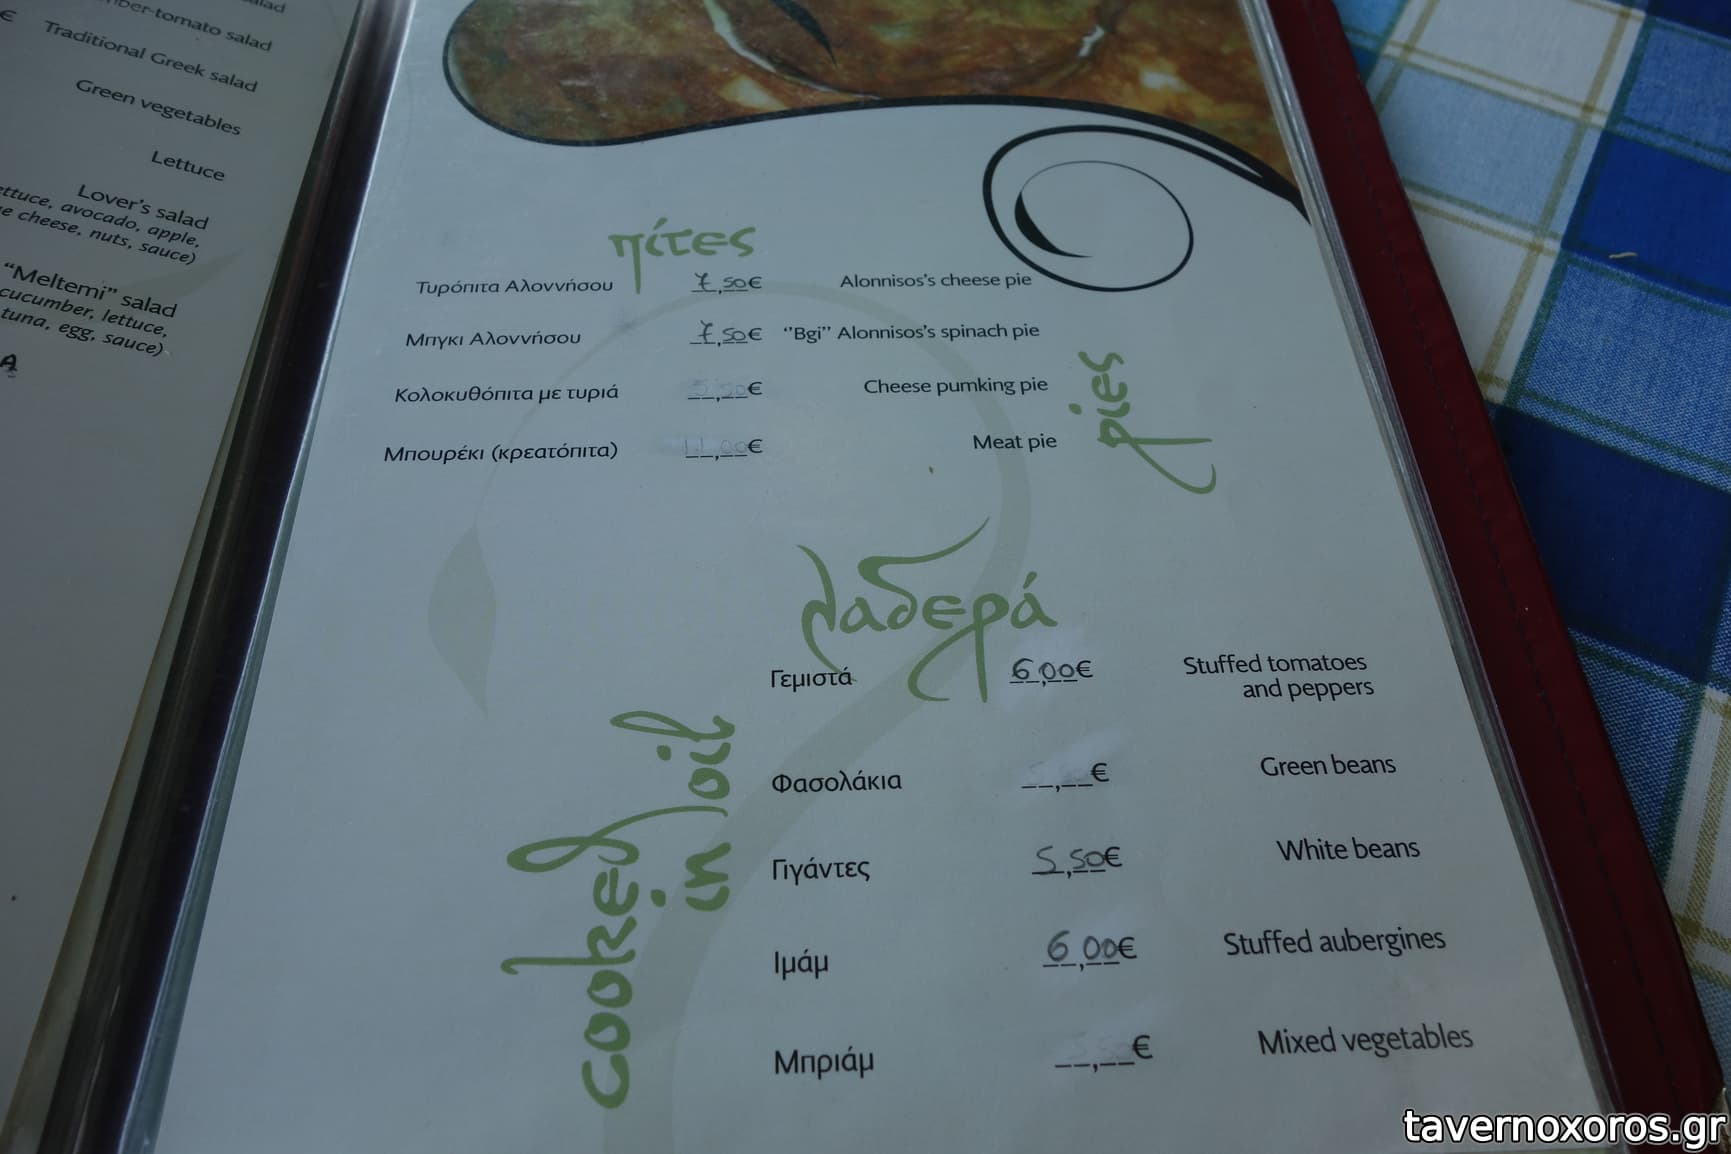 ber-tomato salad
Traditional Greek salad
Green vegetables
Lettuce
Lover's salad
ettuce, avocado, apple,
e cheese, nuts, sauce)
"Meltemi" salad
cucumber, lettuce,
tuna, egg, sauce)
πίτες
Τυρόπιτα Αλοννήσου 7,50€ Alonnisos's cheese pie
Μπγκι Αλοννήσου 7,50€ "Bgi" Alonnisos's spinach pie
Κολοκυθόπιτα με τυριά € Cheese pumking pie
Μπουρέκι (κρεατόπιτα) 11,00€ Meat pie
pies
λαδερά
cooked in oil
Γεμιστά 6,00€ Stuffed tomatoes
and peppers
Φασολάκια € Green beans
Γιγάντες 5,50€ White beans
Ιμάμ 6,00€ Stuffed aubergines
Μπριάμ € Mixed vegetables
tavernoxoros.gr